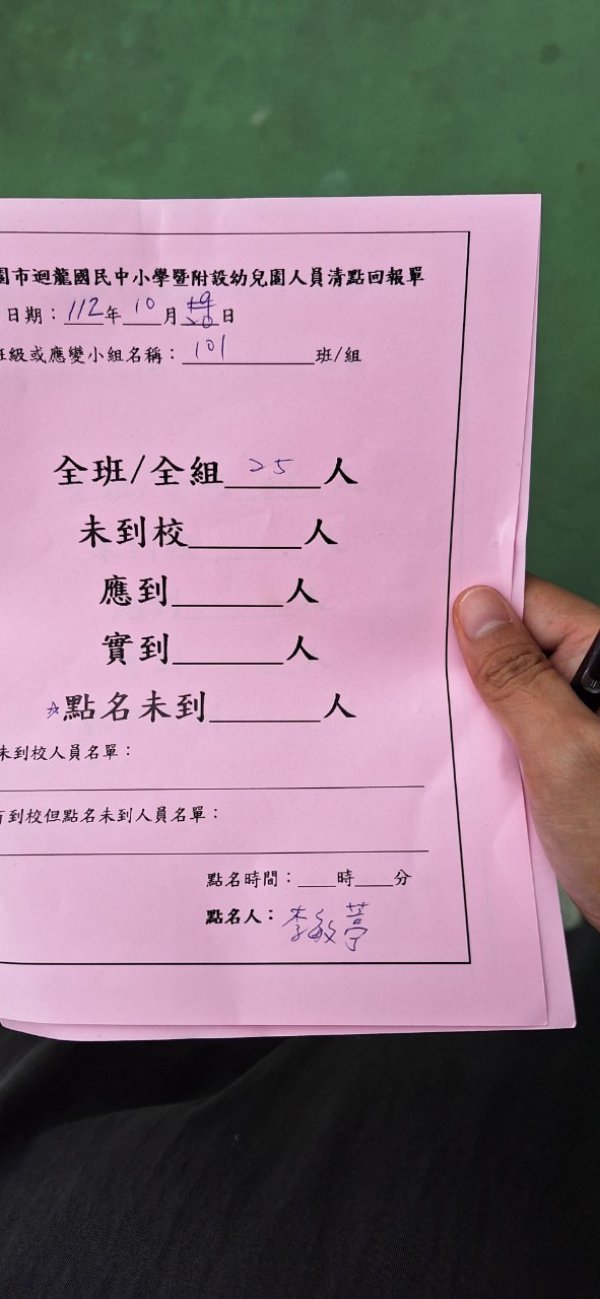 園市迴龍國民中小學暨附設幼兒園人員清點回報單
日期：112年10月20日
班級或應變小組名稱：101班/組
全班/全組25人
未到校____人
應到____人
實到____人
☆點名未到____人
未到校人員名單：
有到校但點名未到人員名單：
點名時間：____時____分
點名人：李敏葶